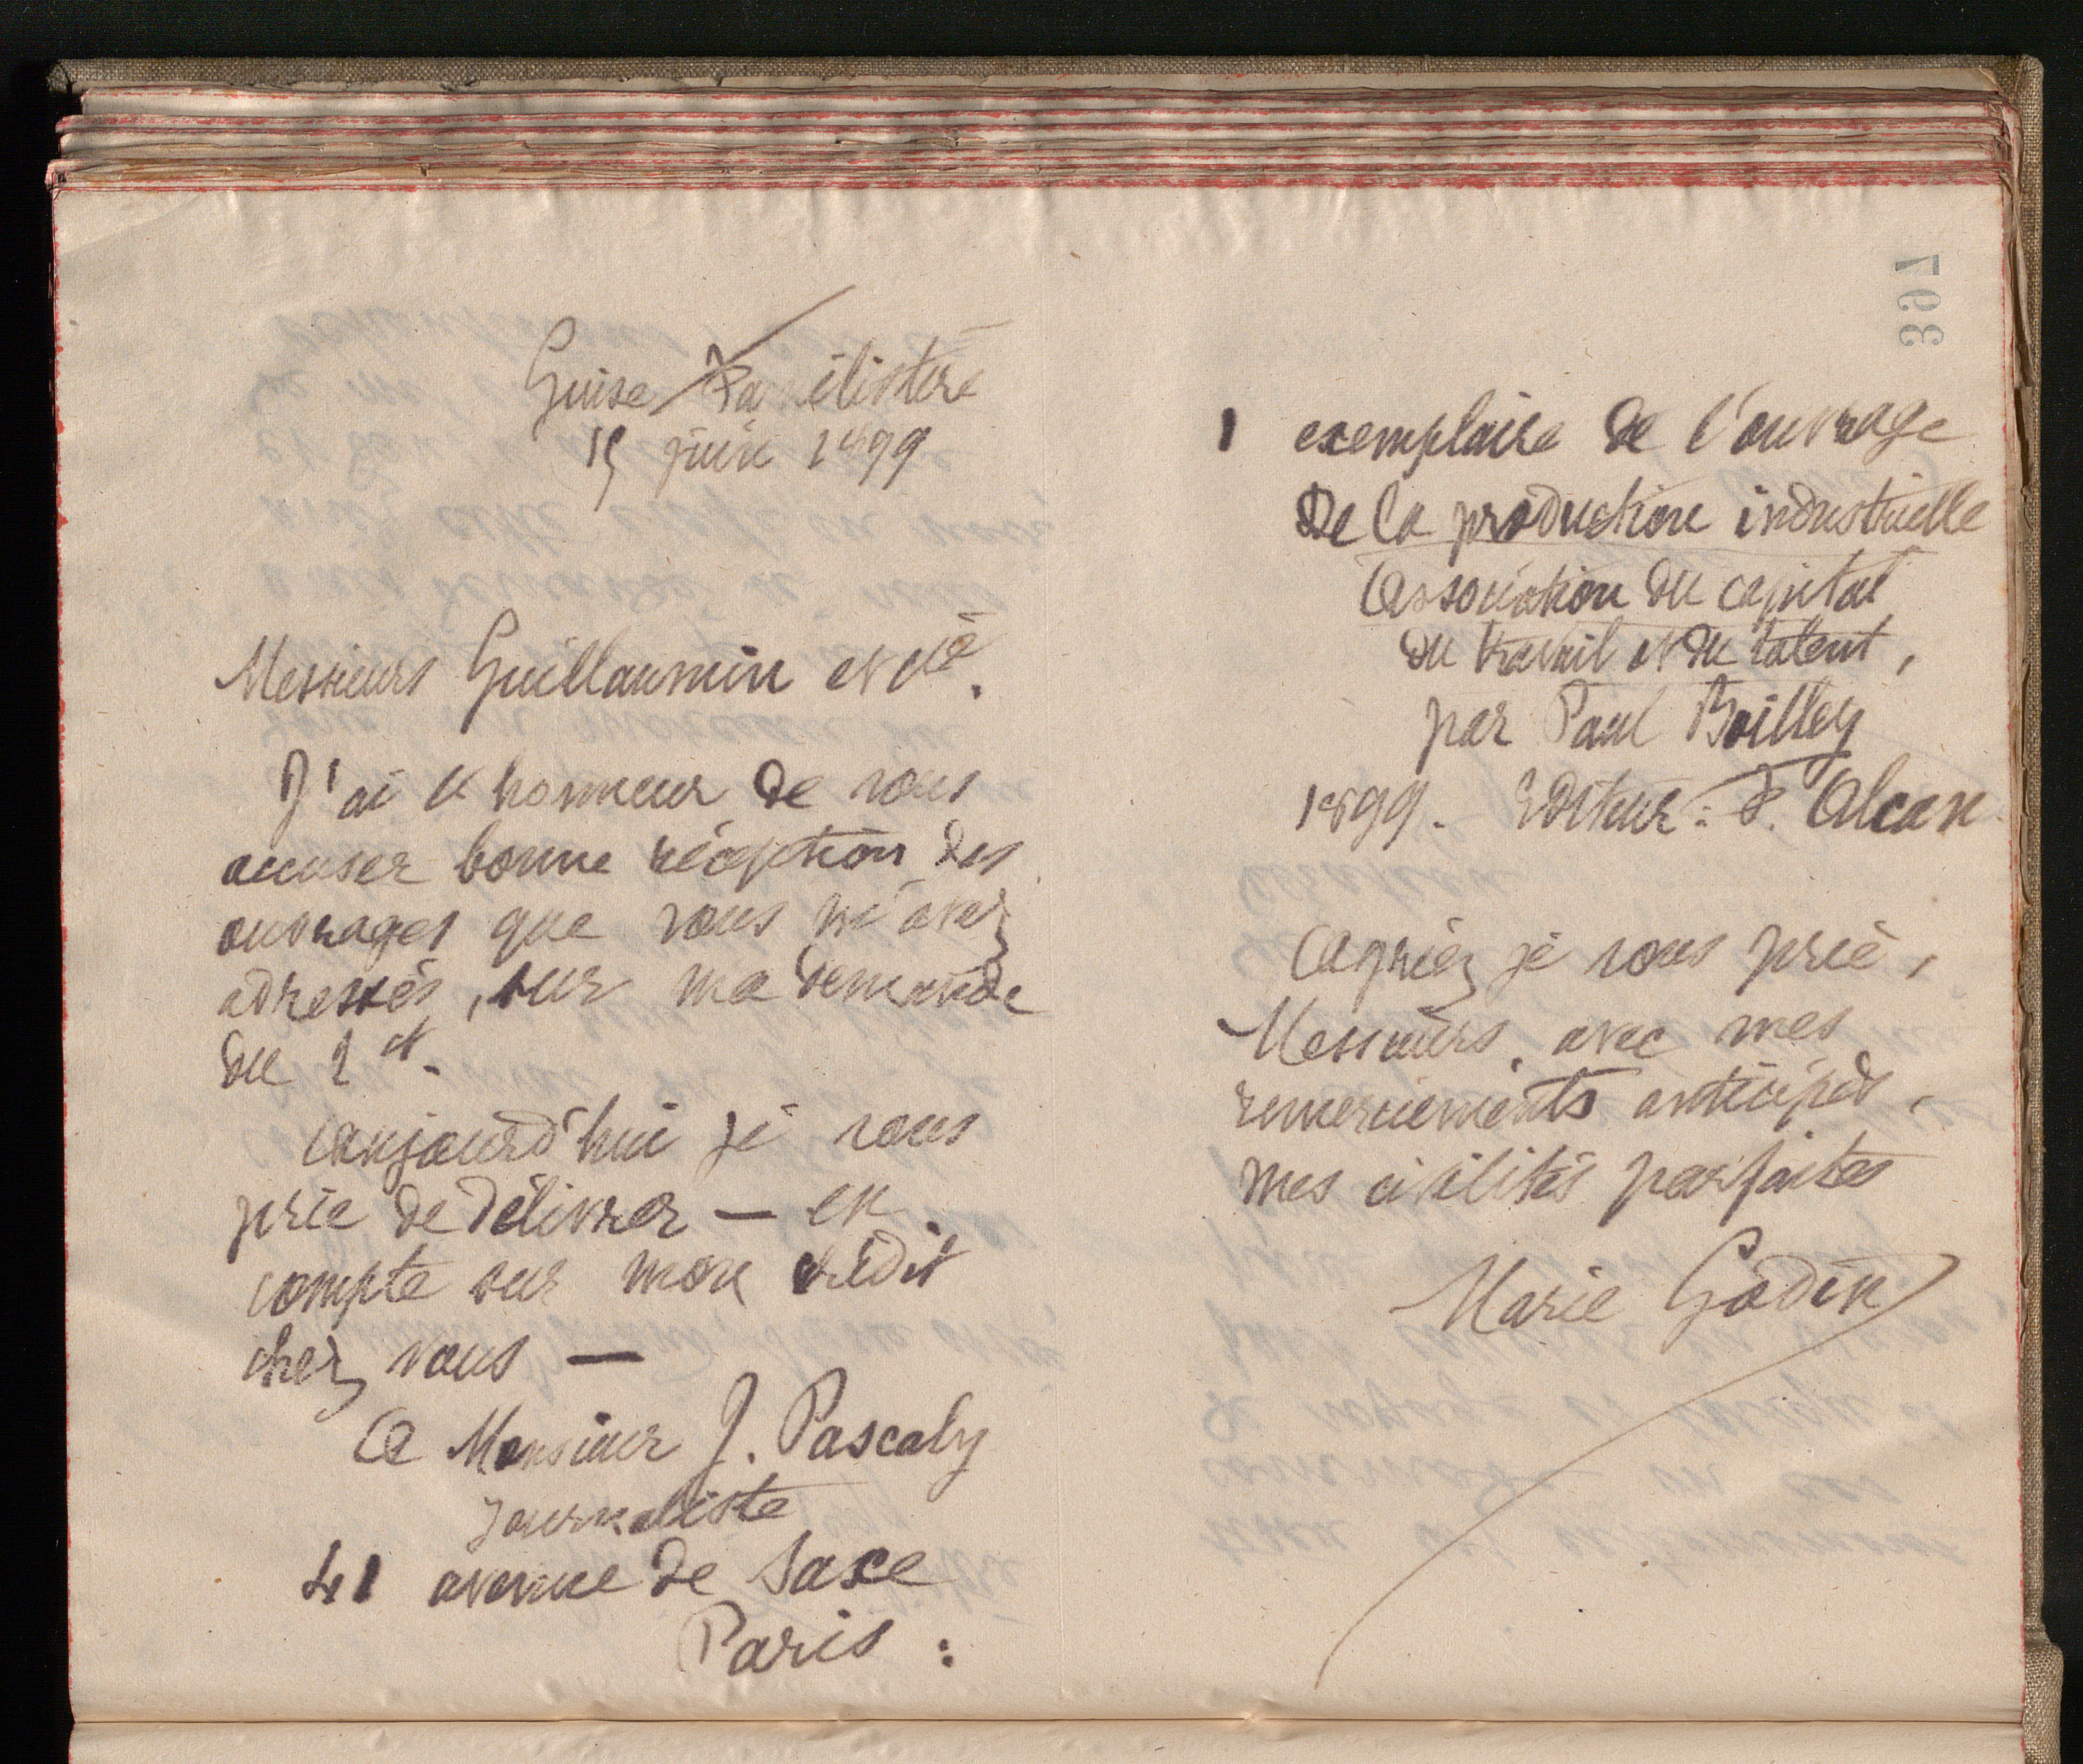 Guise Familistère
15 juin 1899
Messieurs Guillaumin et Cie.
J'ai l'honneur de vous
accuser bonne réception des
ouvrages que vous m'avez
adressés, sur ma demande
du 2 ct.
Aujourd'hui je vous
prie de délivrer — en
compte sur mon crédit
chez vous —
A Monsieur J. Pascaly
Journaliste
41 avenue de Saxe
Paris :
397
1 exemplaire de l'ouvrage
De la production industrielle
Association du capital
du travail et du talent,
par Paul Boilley
1899. Editeur : F. Alcan
Agréez je vous prie,
Messieurs, avec mes
remerciements anticipés,
mes civilités parfaites
Marie Godin